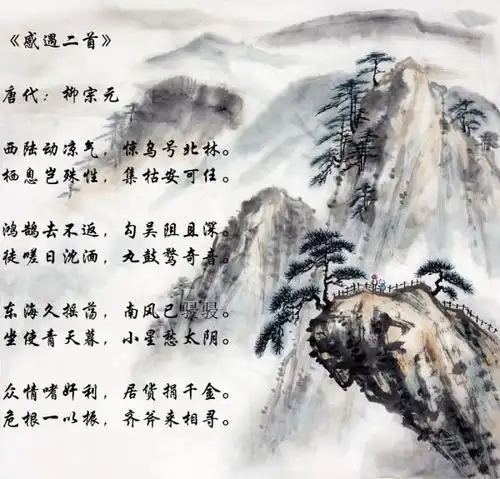 《感遇二首》
唐代：柳宗元
西陆动凉气，惊乌号北林。
栖息岂殊性，集枯安可任。
鸿鹄去不返，勾吴阻且深。
徒嗟日沈湎，丸鼓骛奇音。
东海久摇荡，南风已骎骎。
坐使青天暮，小星愁太阴。
众情嗜奸利，居货捐千金。
危根一以振，齐斧来相寻。